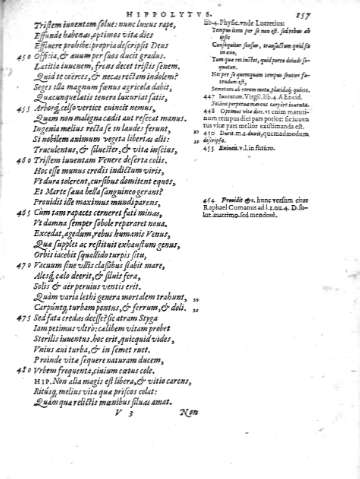 HIPPOLYTVS. 157
Tristem iuuentam solue: nunc luxus rape,
Effunde habenas, optimos vitæ dies
Effluere prohibe: propria descripsit Deus
450 Officia, & auum per suos ducit gradus.
Lætitia iuuenem, frons decet tristis senem.
Quid te coerces, & necas rectam indolem?
Seges illa magnum fœnus agricolæ dabit,
Quæcunque lætis tenera luxuriat satis,
455 Arborq́; celso vertice euincet nemus,
Quam non maligna cadit aut resecat manus.
Ingenia melius recta se in laudes ferunt,
Si nobilem animum vegeta libertas alit:
Truculentus, & siluester, & vitæ inscius,
460 Tristem iuuentam Venere deserta colis.
Hoc esse munus credis indictum viris,
Vt dura tolerent, cursibus domitent equos,
Et Marte saua bella sanguineo gerant?
Prouidit ille maximus mundi parens,
465 Cum tam rapaces cerneret fati minas,
Vt damna semper sobole repararet noua.
Excedat, agedum, rebus humanis Venus,
Quæ supplet ac restituit exhaustum genus,
Orbis iacebit squallido turpis situ,
470 Vacuum sine vllis classibus stabit mare,
Alesq́; cælo deerit, & siluis fera,
Solis & aër peruius ventis erit.
Quàm varia lethi genera mortalem trahunt,
Carpuntq́; turbam pontus, & ferrum, & doli.
475 Sed fata credas deesse? sic atram Styga
Iam petimus vltro: cælibem vitam probet
Sterilis iuuentus: hoc erit, quicquid vides,
Vnius æui turba, & in semet ruet.
Proinde vitæ sequere naturam ducem,
480 Vrbem frequenta, ciuium cœtus cole.
HIP. Non alia magis est libera, & vitio carens,
Ritusq́; melius vita quæ priscos colat:
Quàm quæ relictis mœnibus siluas amat.
V 3 Non
lib. 4. Physic. vnde Lucretius:
Tempus item per se non est. sed rebus ab
ipsis
Consequitur sensus, transactum quid sit
in æuo,
Tum quæ res instet, quid porro deinde sequatur.
Nec per se quemquam tempus sentire fatendum est,
Semotum ab rerum motu, placidaq́; quiete.
448 Optimos vitæ dies.
455 Euincet. v.l.
454 Prouidit &c. hunc versum citat
Raphael Cumanus